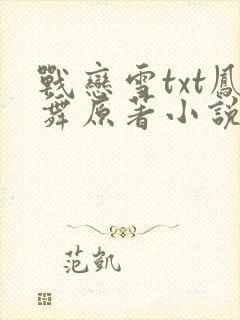 戰戀雪txt鳳
舞原著小說
范凱